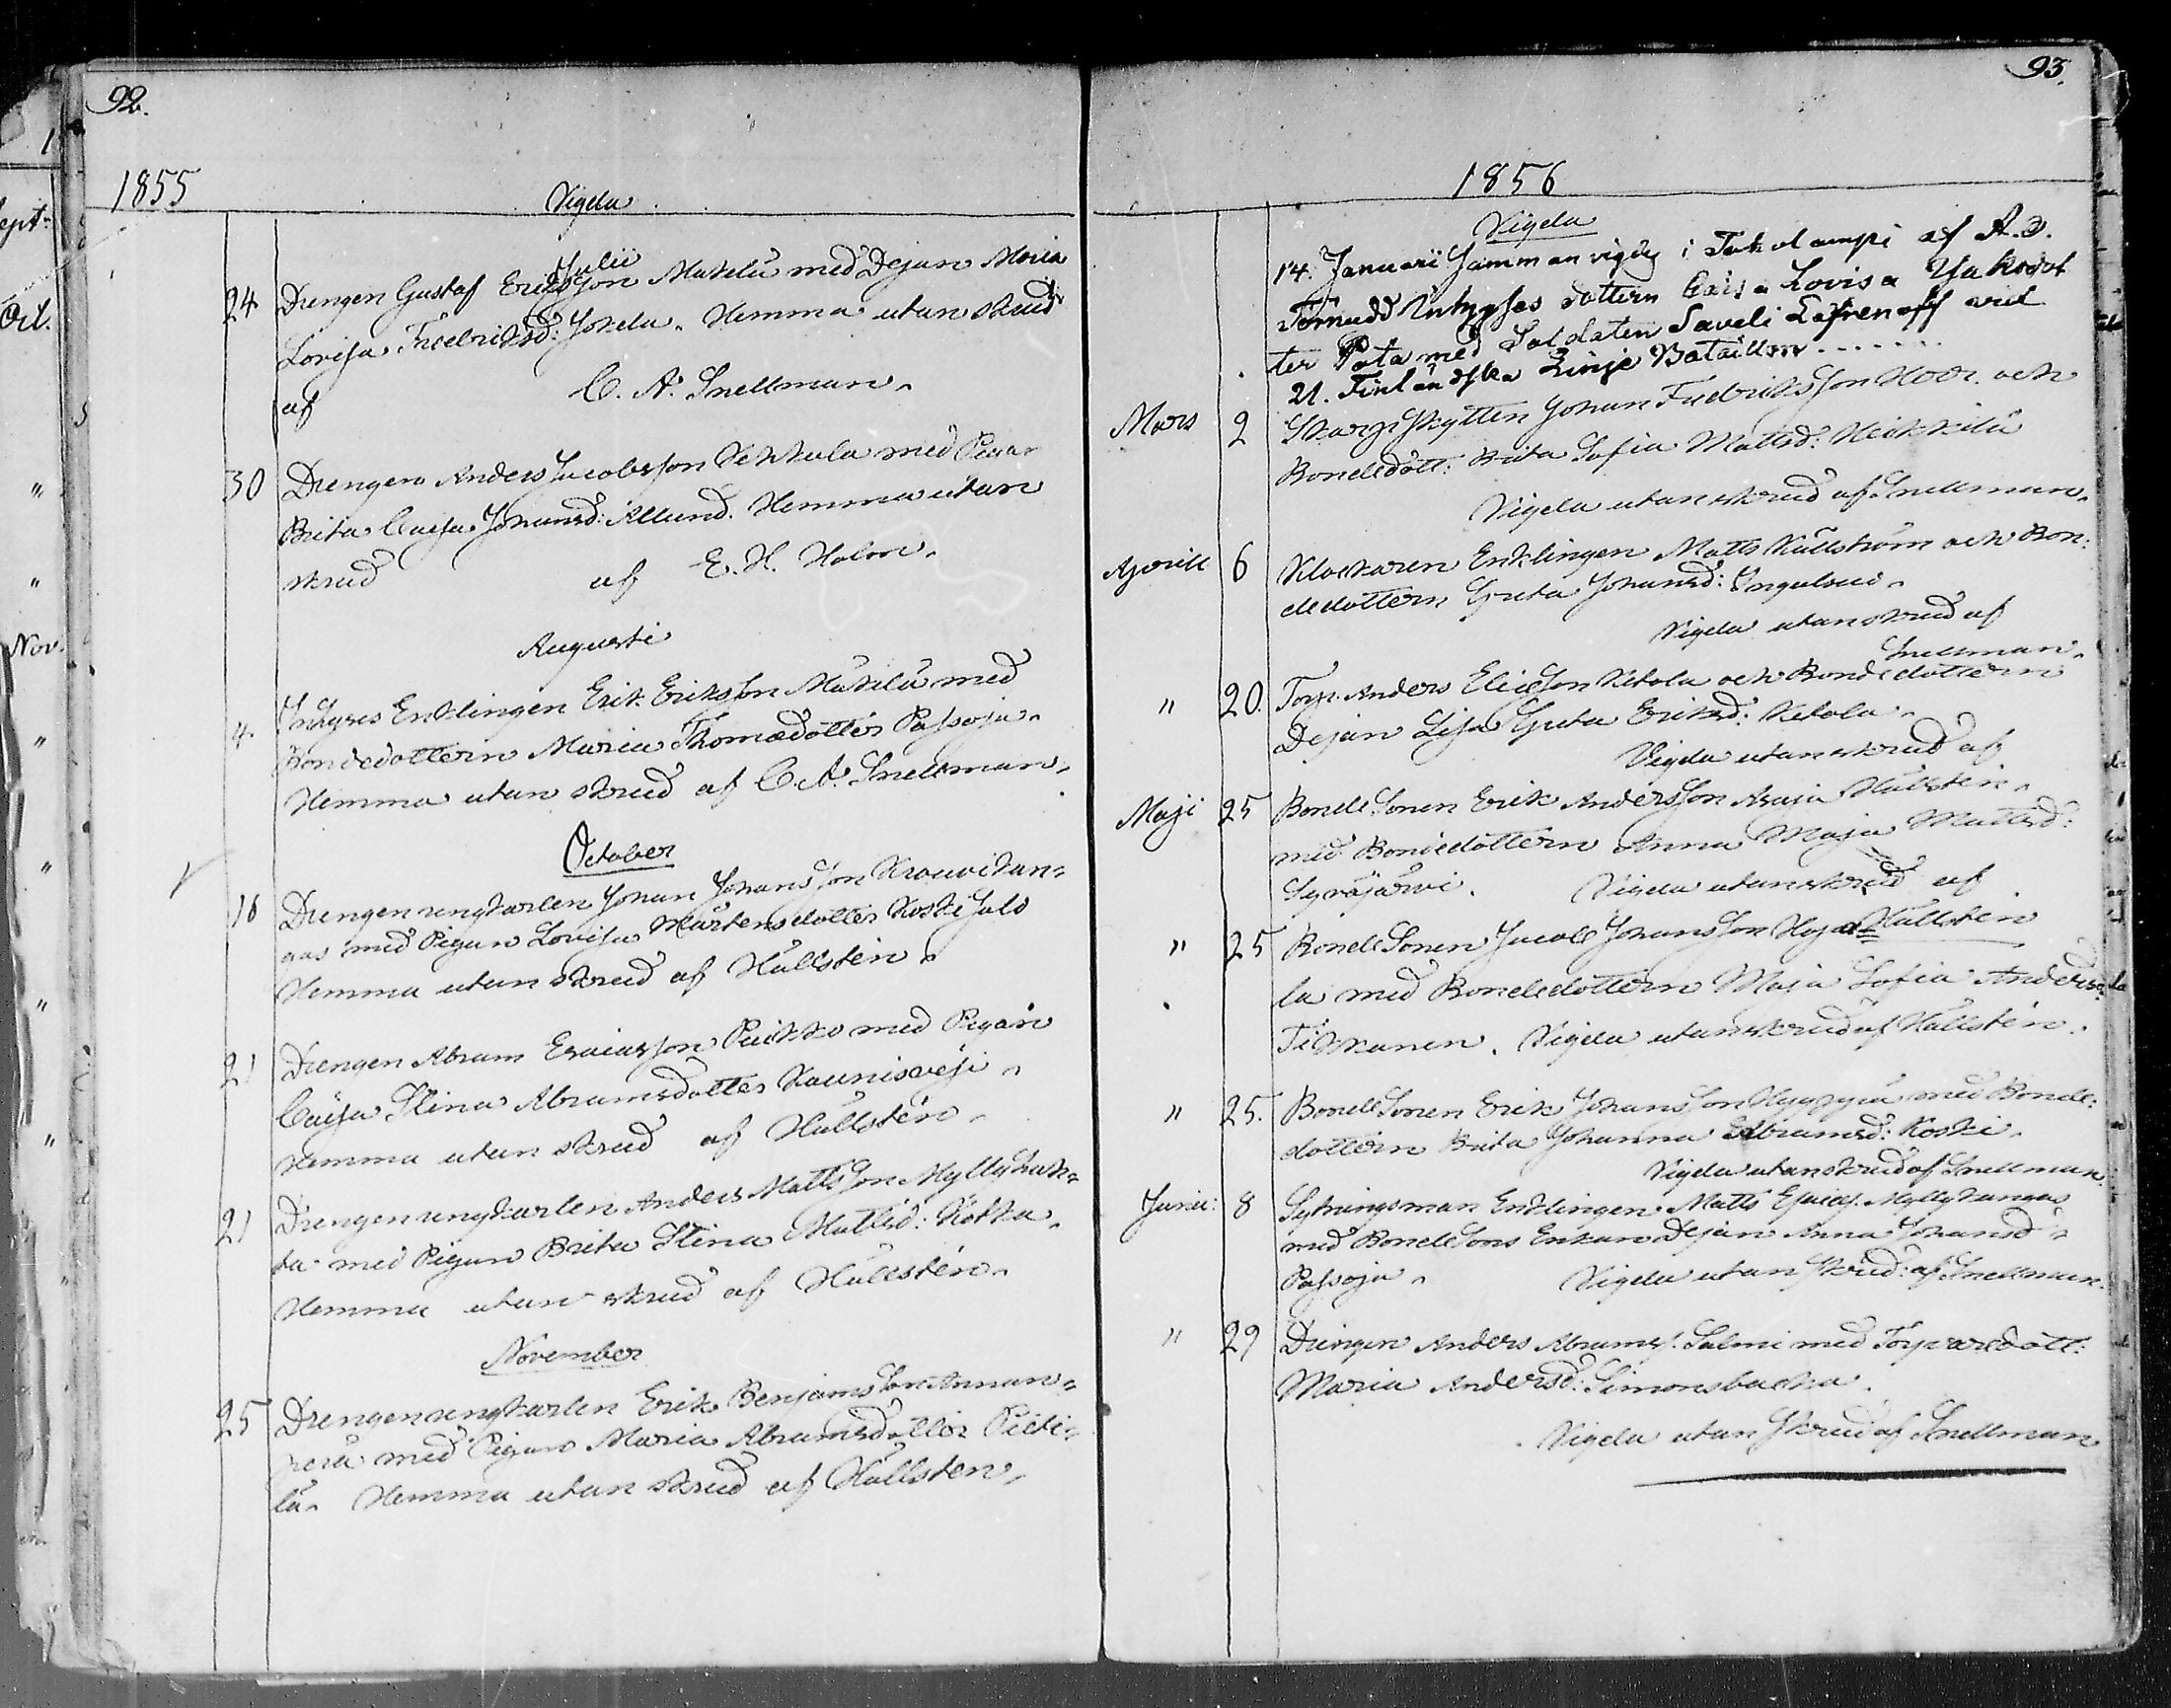 92.
1855
Vigda
Julii
24 Drengen Gustaf Eriksson Mäkelä med Dejan Maria
Lovisa Fredriksd: Jokela. Hemma utan skrud
af C. A. Snellman.
30 Drengen Anders Jacobsson Wekkala med Pigan
Brita Caisa Johansd: Allund. Hemma utan
skrud af E. H. Holm.
Augusti
4. Inhyses Enklingen Erik Eriksson Mäkelä med
Bondedottern Maria Thomædotter Passoja.
Hemma utan skrud af C. A. Snellman.
October
16 Drengen ungkarlen Johan Johansson Krouvikan=
gas med Pigan Lovisa Mårtensdotter Koskisalo
Hemma utan skrud af Hällstén.
21 Drengen Abram Esaiasson Peikko med Pigan
Caisa Stina Abramsdotter Kaunisvesi.
Hemma utan skrud af Hällstén.
21 Drengen ungkarlen Anders Mattsson Myllylah=
ta med Pigan Brita Stina Mattsd: Kokka.
Hemma utan skrud af Hällstén.
November
25 Drengen ungkarlen Erik Benjamsson Annan=
perä med Pigan Maria Abramsdotter Pieti=
lä. Hemma utan skrud af Hällsten.
93.
1856
Vigda
14. Januari Sammanvigdes i Tukolampi af A. O.
Törnudd Inhyses dottern Caisa Lovisa Yakobsdot
ter Pota med Soldaten Saveli Lefrenoff vid
21. Finländska Linje Bataillon.......
Mars 2 Skarpskytten Johan Fredriksson Hoor. och
Bondedott: Brita Sofia Mattsd: Heikkilä
Vigda utan skrud af Snellman.
Aprill 6 Klockaren Enklingen Matts Källström och Bon:
dedottern Greta Johansd: Ängeslevä.
Vigda utan skrud af
Snellman.
" 20. Torp. Anders Eliesson Ketola och Bondedottern
Dejan Lisa Greta Eriksd: Ketola.
Vigda utan skrud af
Maji 25 Bonde Sonen Erik Andersson Asuja Hällstén.
med Bondedottern Anna Maja Mattsd:
Syväjärvi. Vigda utan skrud af
" 25 Bonde Sonen Jacob Johansson Huja= Hällstén
la med Bondedottern Maja Sofia Andersd:
Tikkanen. Vigda utan skrud af Hällstén.
" 25. Bonde Sonen Erik Johansson Hyypyä med Bonde:
dottern Brita Johanna Abramsd: Koski.
Vigda utan skrud af Snellman.
Junii: 8 Sytningsman Enklingen Matts Esaias. Myllykangas
med Bonde Sons Enkan Dejan Anna Johansd.
Passoja. Vigda utan skrud: af Snellman.
" 29 Drengen Anders Abrams. Salmi med Torparedott:
Maria Andersd: Simonsbacka.
Vigda utan skrud af Snellman